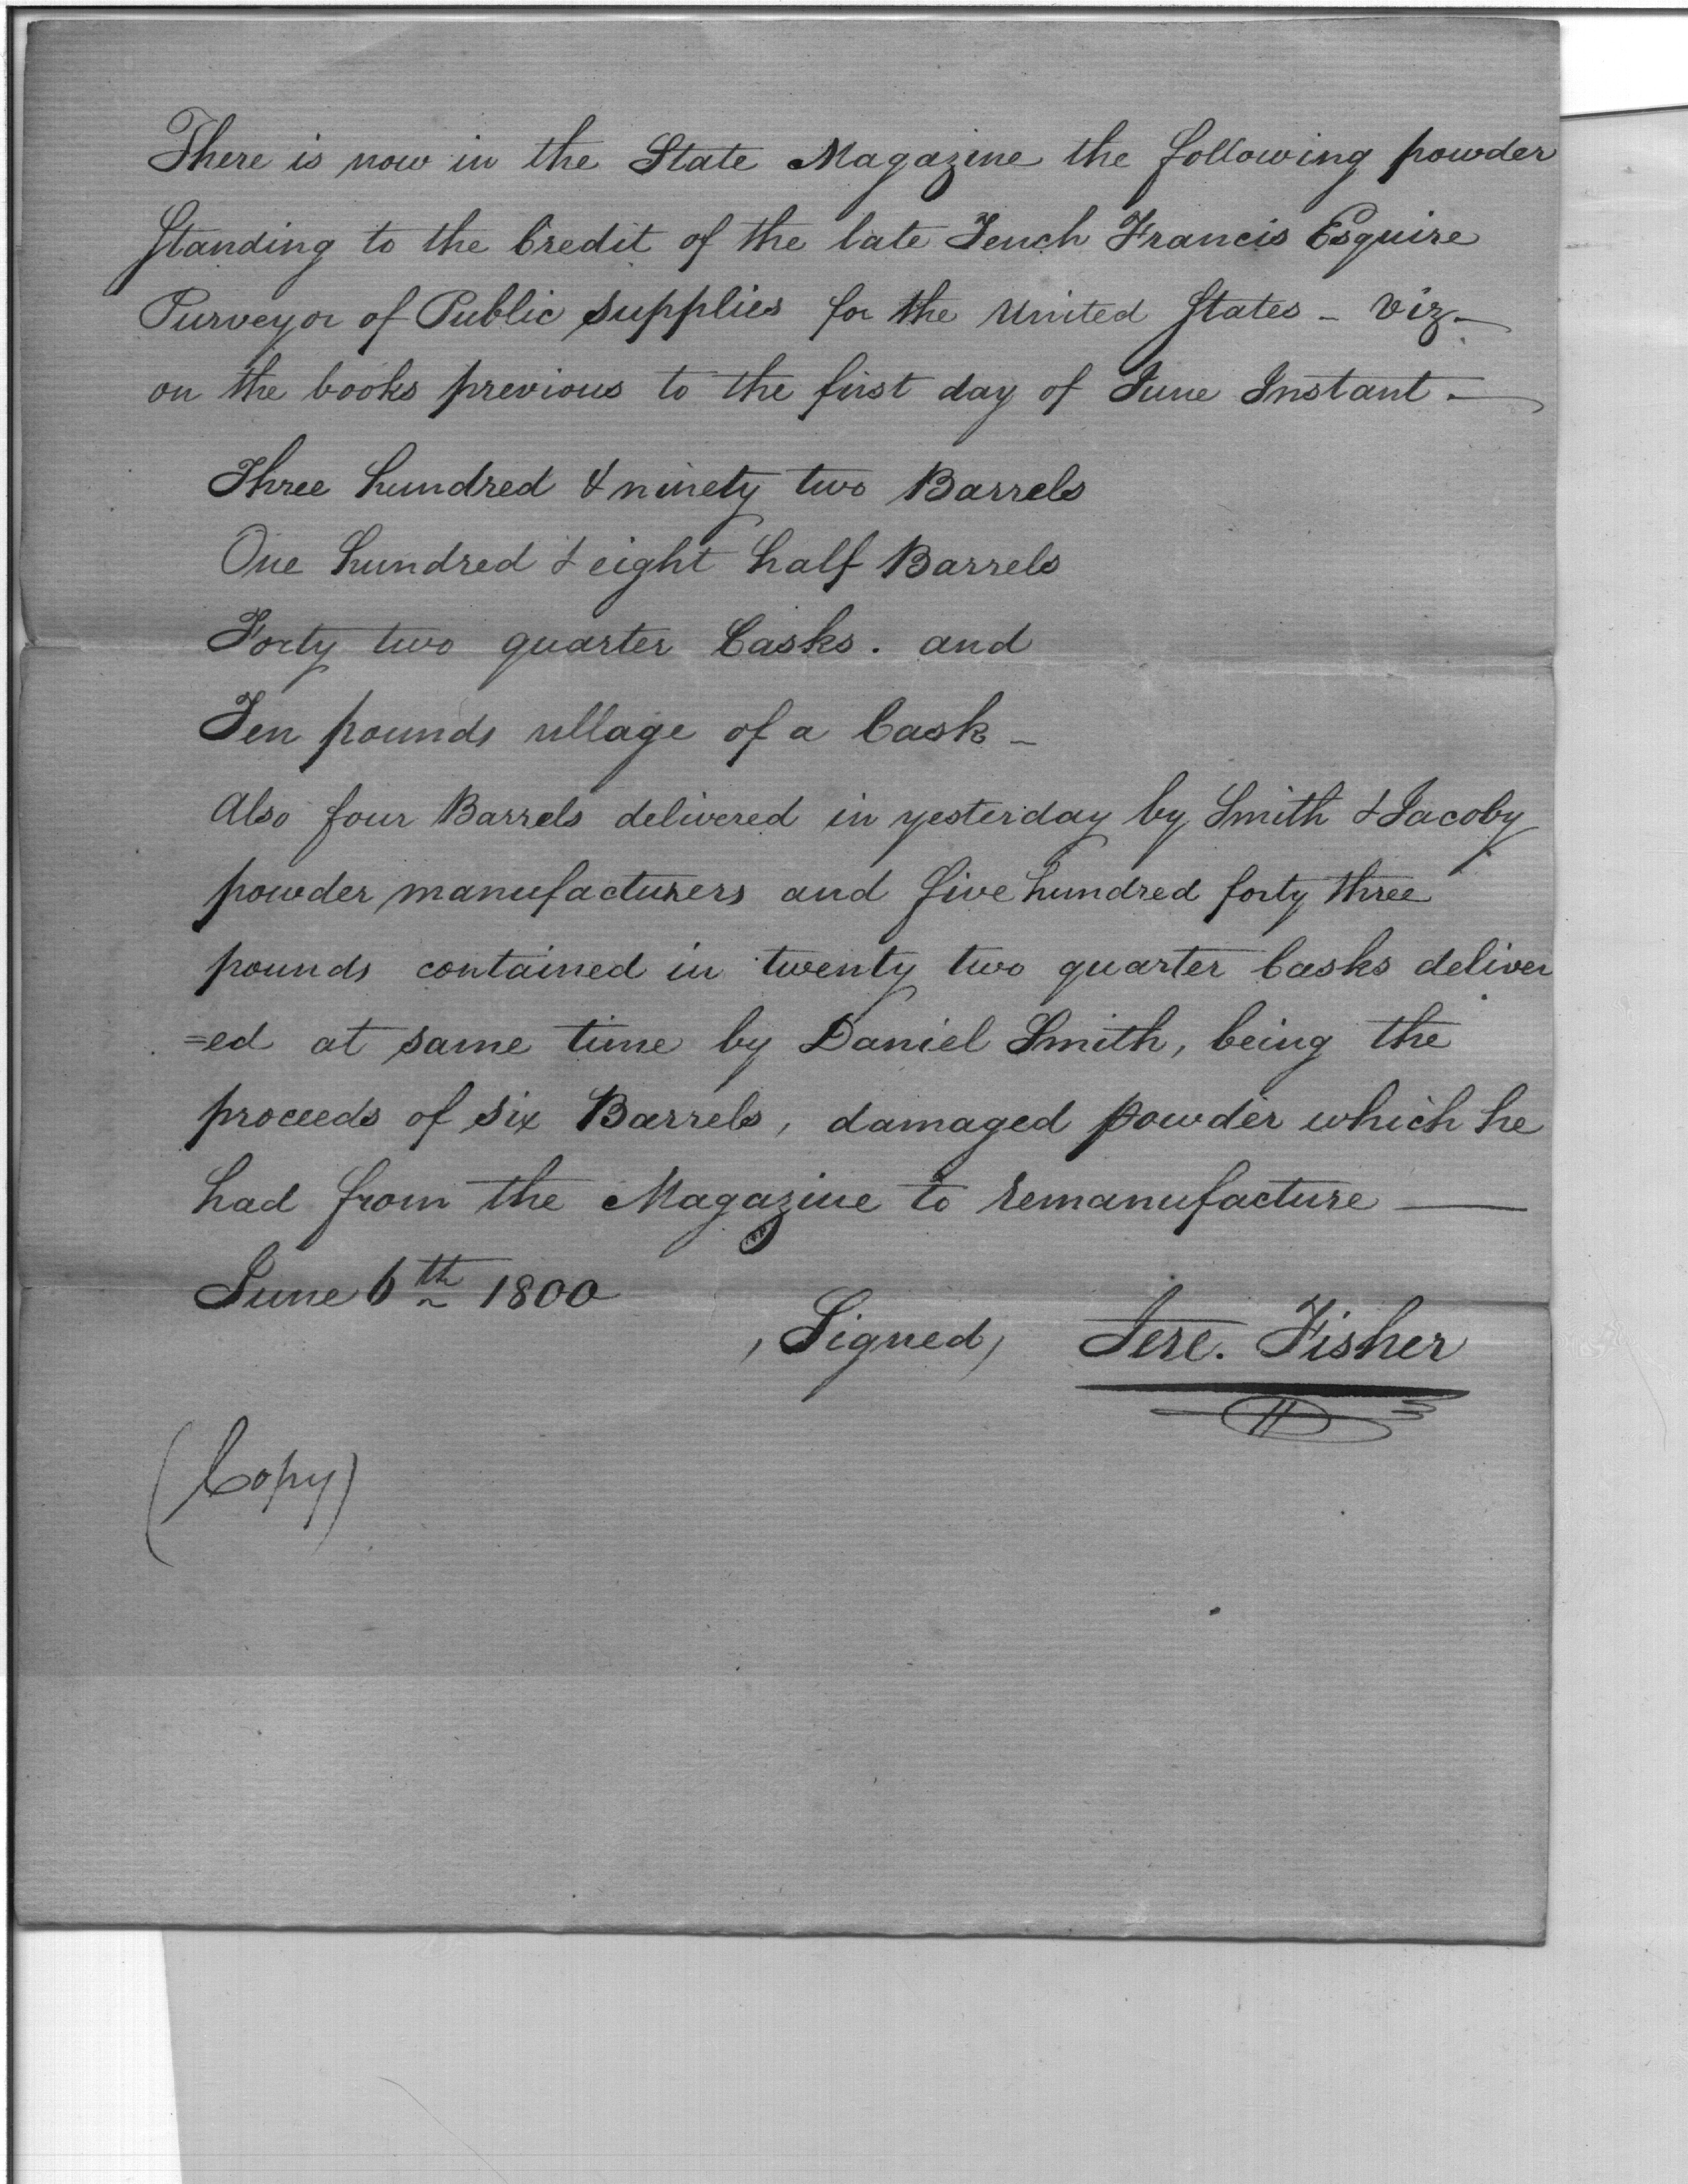 There is now in the State Magazine the following powder
Standing to the Credit of the late Tench Francis Esquire
Purveyor of Public Supplies for the United States – Viz –
on the books previous to the first day of June Instant –
Three hundred & ninety two Barrels
One hundred & eight half Barrels
Forty two quarter Casks. and
Ten pounds ullage of a Cask –
Also four Barrels delivered in yesterday by Smith & Jacoby
powder manufacturers and five hundred forty three
pounds contained in twenty two quarter Casks deliver
=ed at same time by Daniel Smith, being the
proceeds of six Barrels, damaged powder which he
had from the Magazine to remanufacture —
June 6th 1800
, Signed, Jere. Fisher
(Copy)